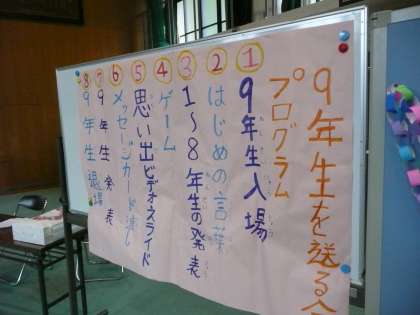 9年生を送る会
プログラム
① 9年生入場
② はじめの言葉
③ 1～8年生の発表
④ ゲーム
⑤ 思い出ビデオスライド
⑥ メッセージカード渡し
⑦ 9年生発表
⑧ 9年生退場